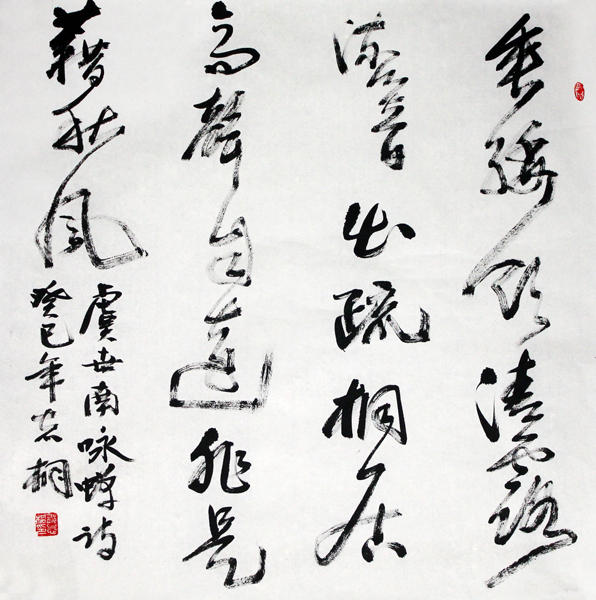 垂緌飲清露
流響出疏桐居
高聲自遠非是
藉秋風
虞世南咏蟬詩
癸巳年桐